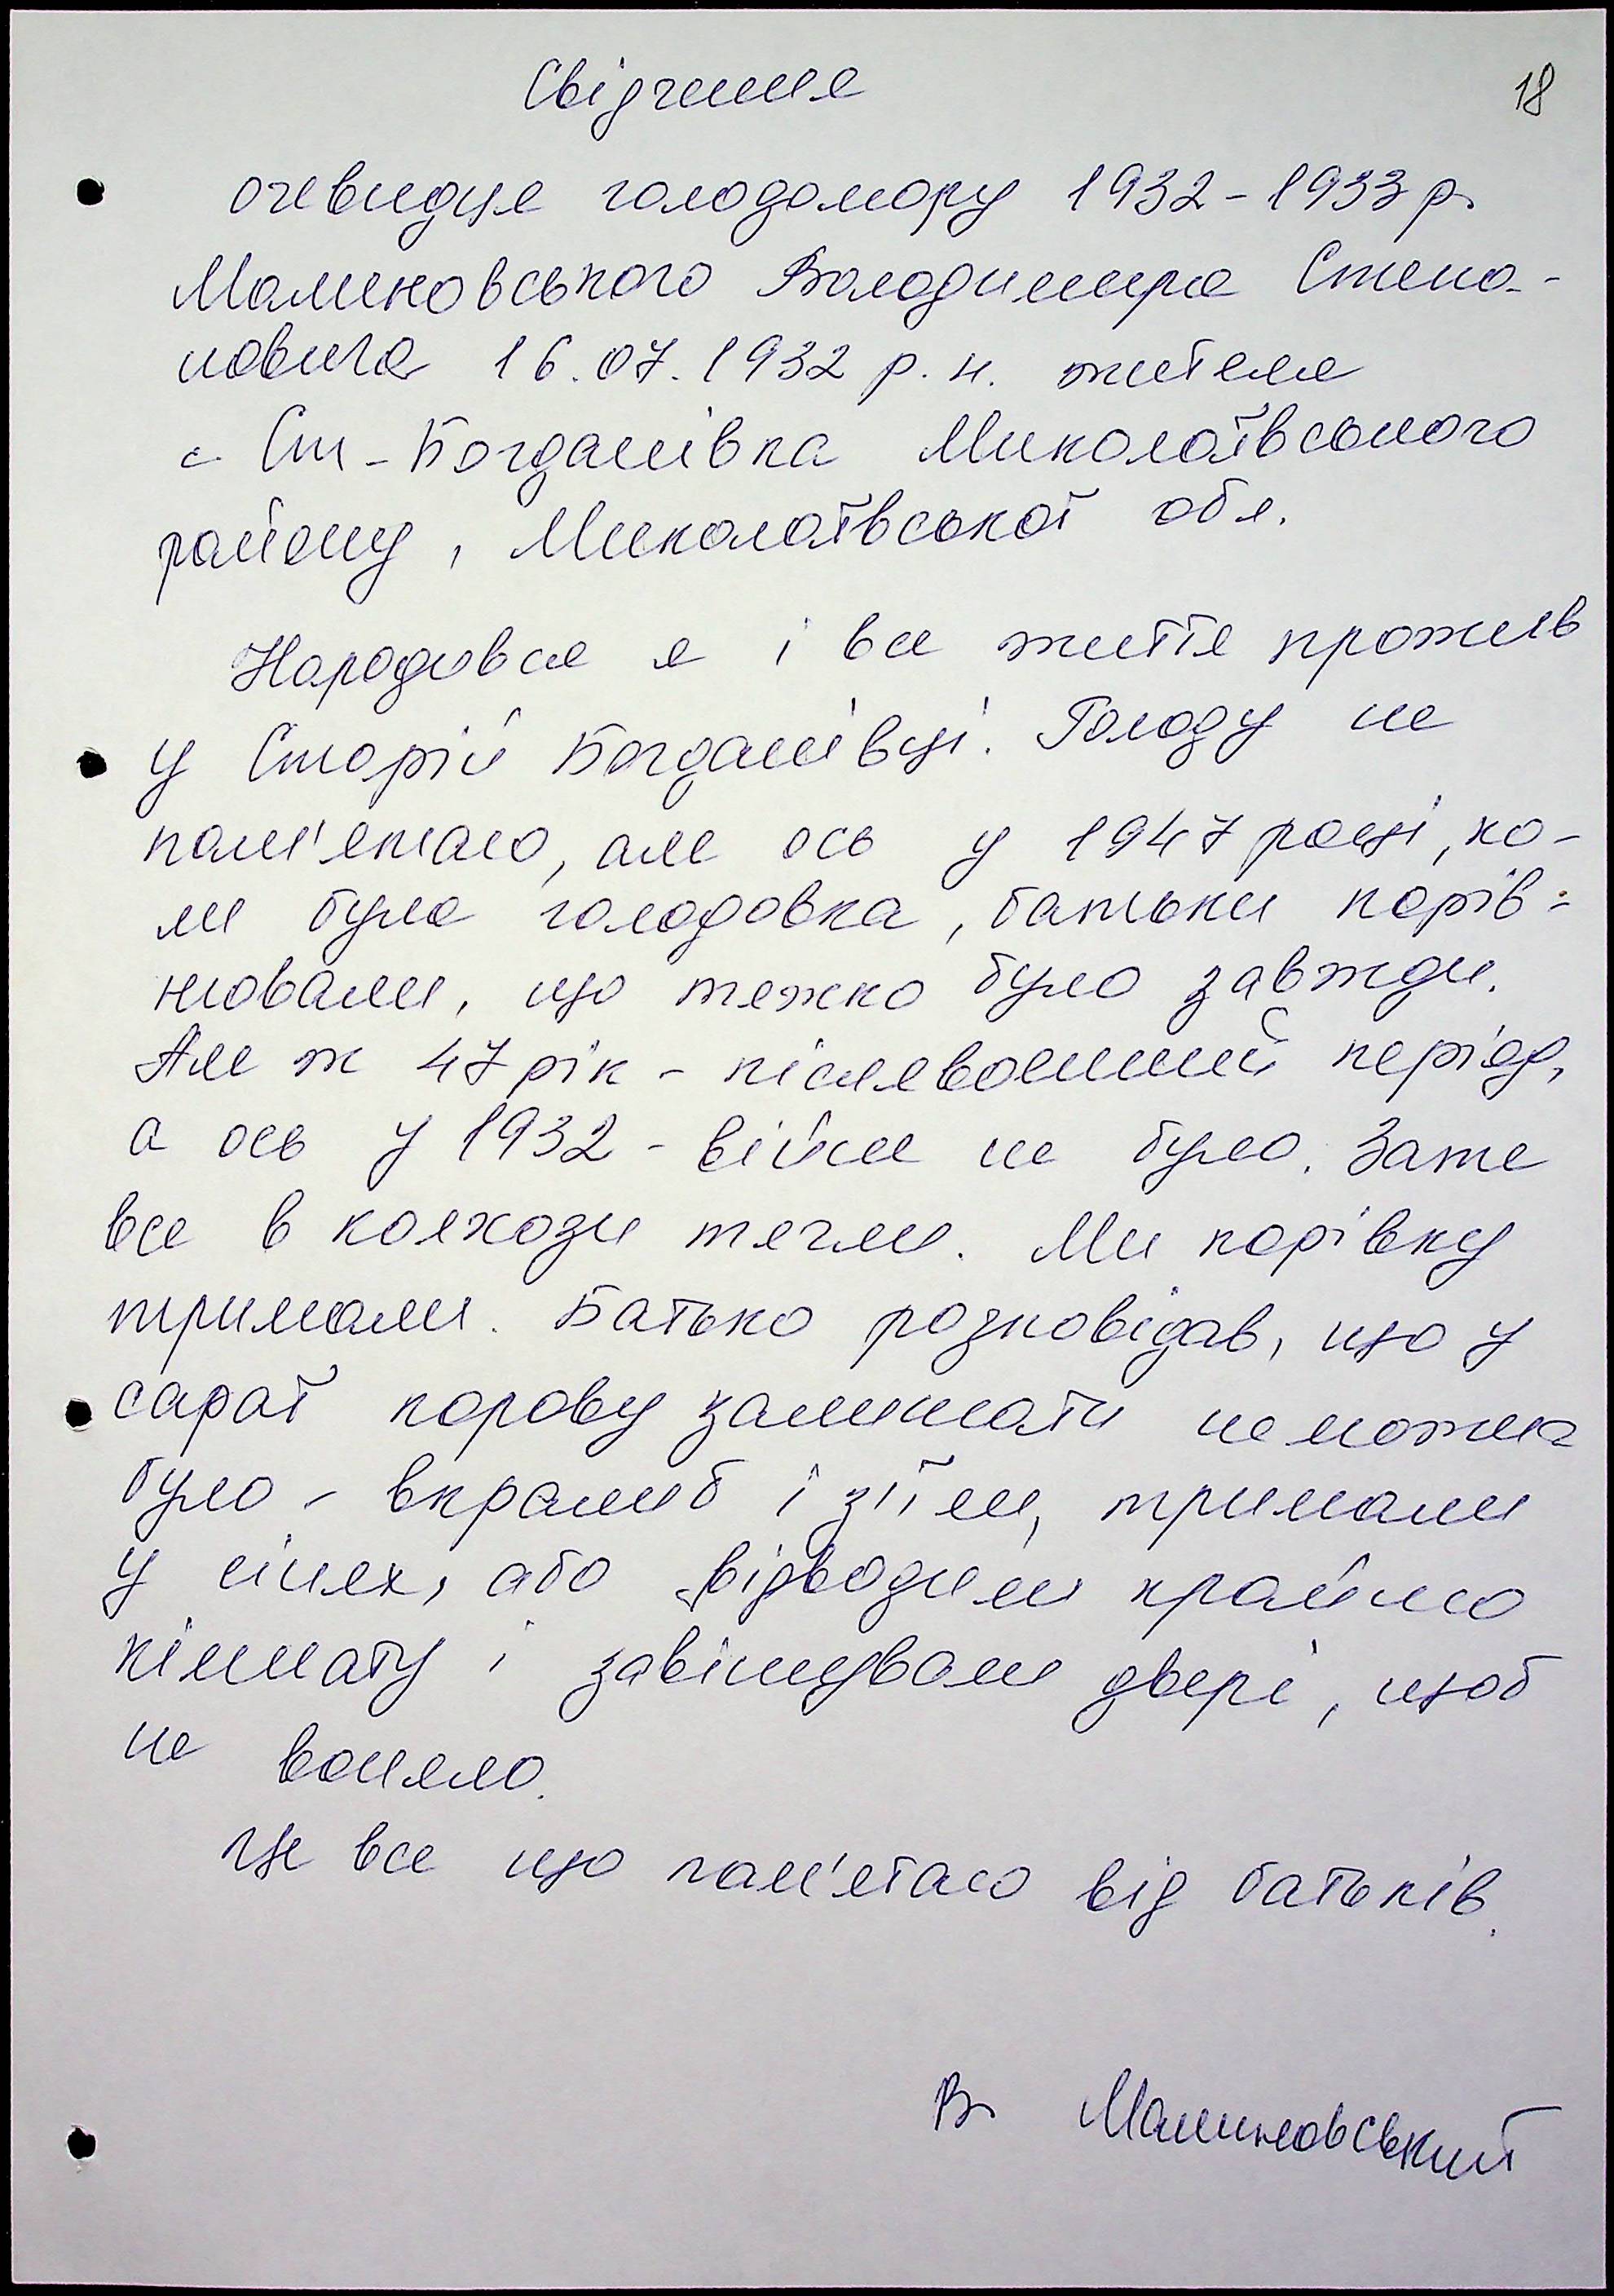 Свідчення
18
очевидця голодомору 1932-1933 р.
Малиновського Володимира Степа-
новича 16.07.1932 р. н. жителя
с. Ст-Богданівка Миколаївського
району, Миколаївської обл.
Народився я і все життя прожив
у Старій Богданівці. Голоду не
пам'ятаю, але ось у 1947 році, ко-
ли була голодовка, батьки порів-
нювали, що тяжко було завжди.
Але ж 47 рік - післявоєнний період,
а ось у 1932 - війни не було. Зате
все в колхози тягли. Ми корівку
тримали. Батько розповідав, що у
сараї корову залишати не можна
було - вкралиб і зїли, тримали
у сінях, або відводили крайню
кімнату і завішували двері, щоб
не воняло.
Це все що пам'ятаю від батьків.
В. Малиновський